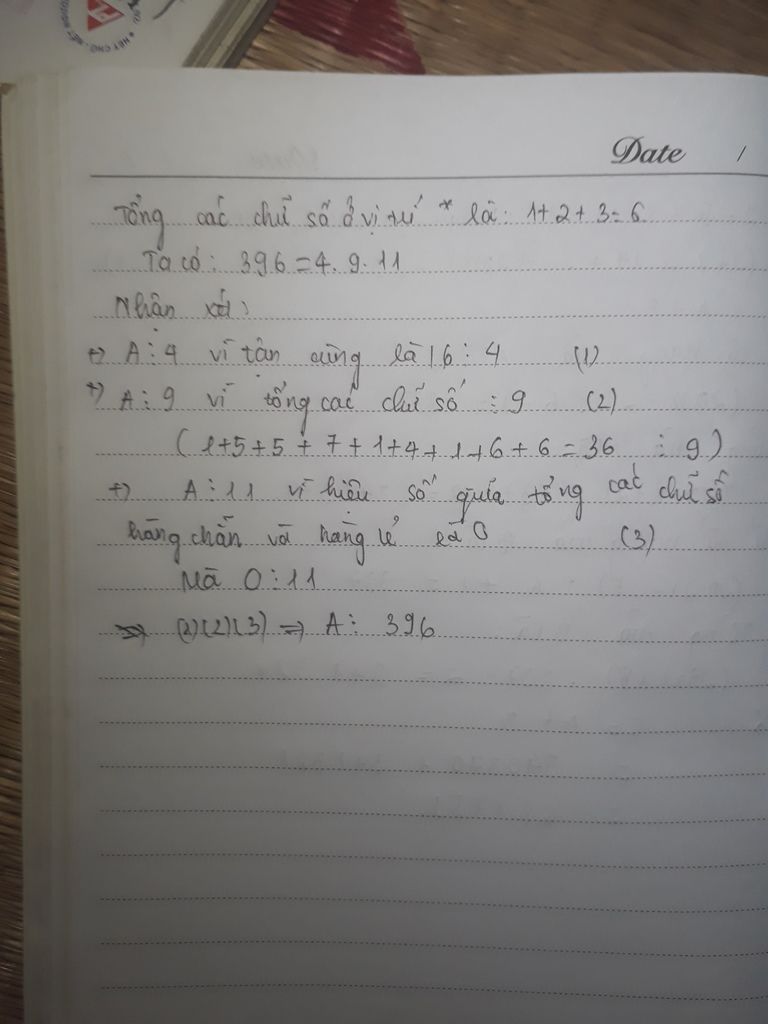 Date /
Tổng các chữ số ở vị trí * là: 1+2+3=6.
Ta có: 396=4.9.11
Nhận xét:
+) A⋮4 vì tận cùng là 16⋮4 (1)
+) A⋮9 vì tổng các chữ số ⋮9 (2)
(1+5+5+7+1+4+1+6+6=36 ⋮9)
+) A⋮11 vì hiệu số giữa tổng các chữ số
hàng chẵn và hàng lẻ là 0 (3)
Mà 0⋮11
=> (2)(2)(3) => A⋮ 396